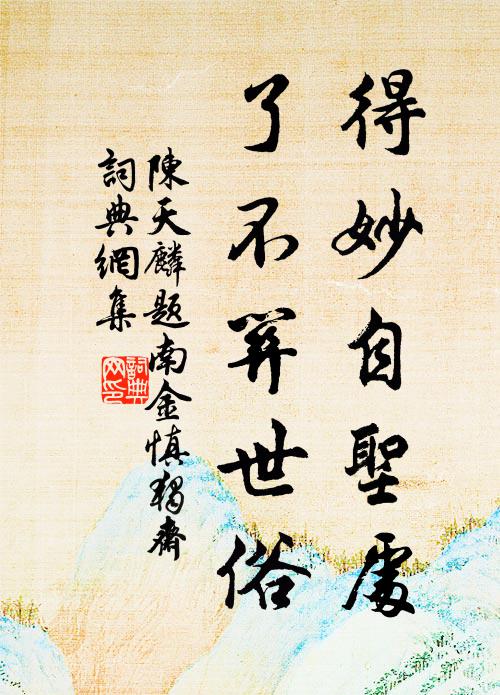 得妙自聖處
了不笄世俗
陳天麟題南金慎獨齋
詞典網集
詞典
网印